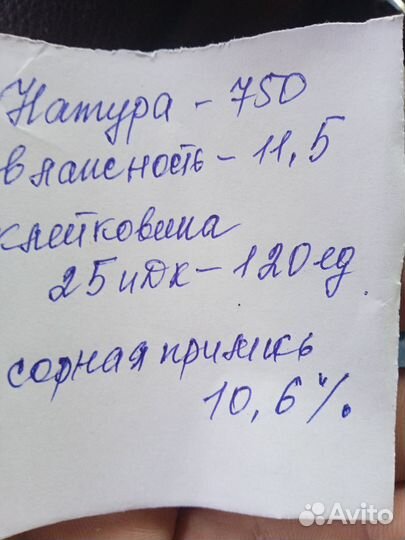 Натура - 750
влажность - 11,5
клейковина
25 идк - 120 ед.
сорная примись
10,6%.
Avito